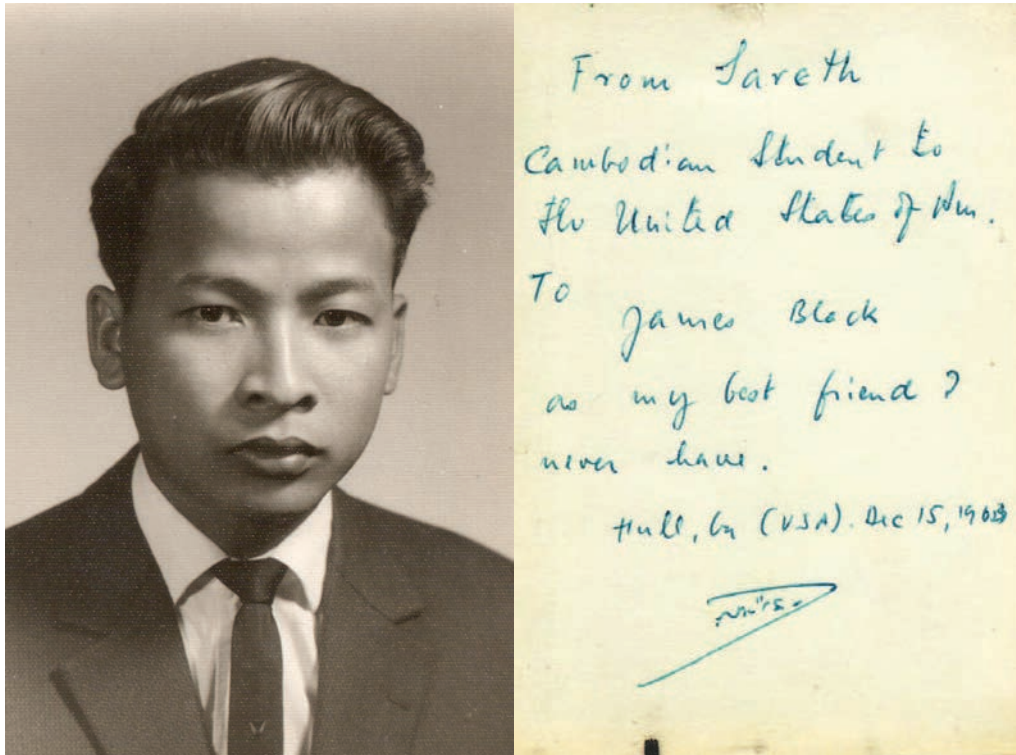 From Sareth
Cambodian Student to
the United States of Am.
To
James Black
as my best friend I
never have.
Hull, Ga (USA). Dec 15,